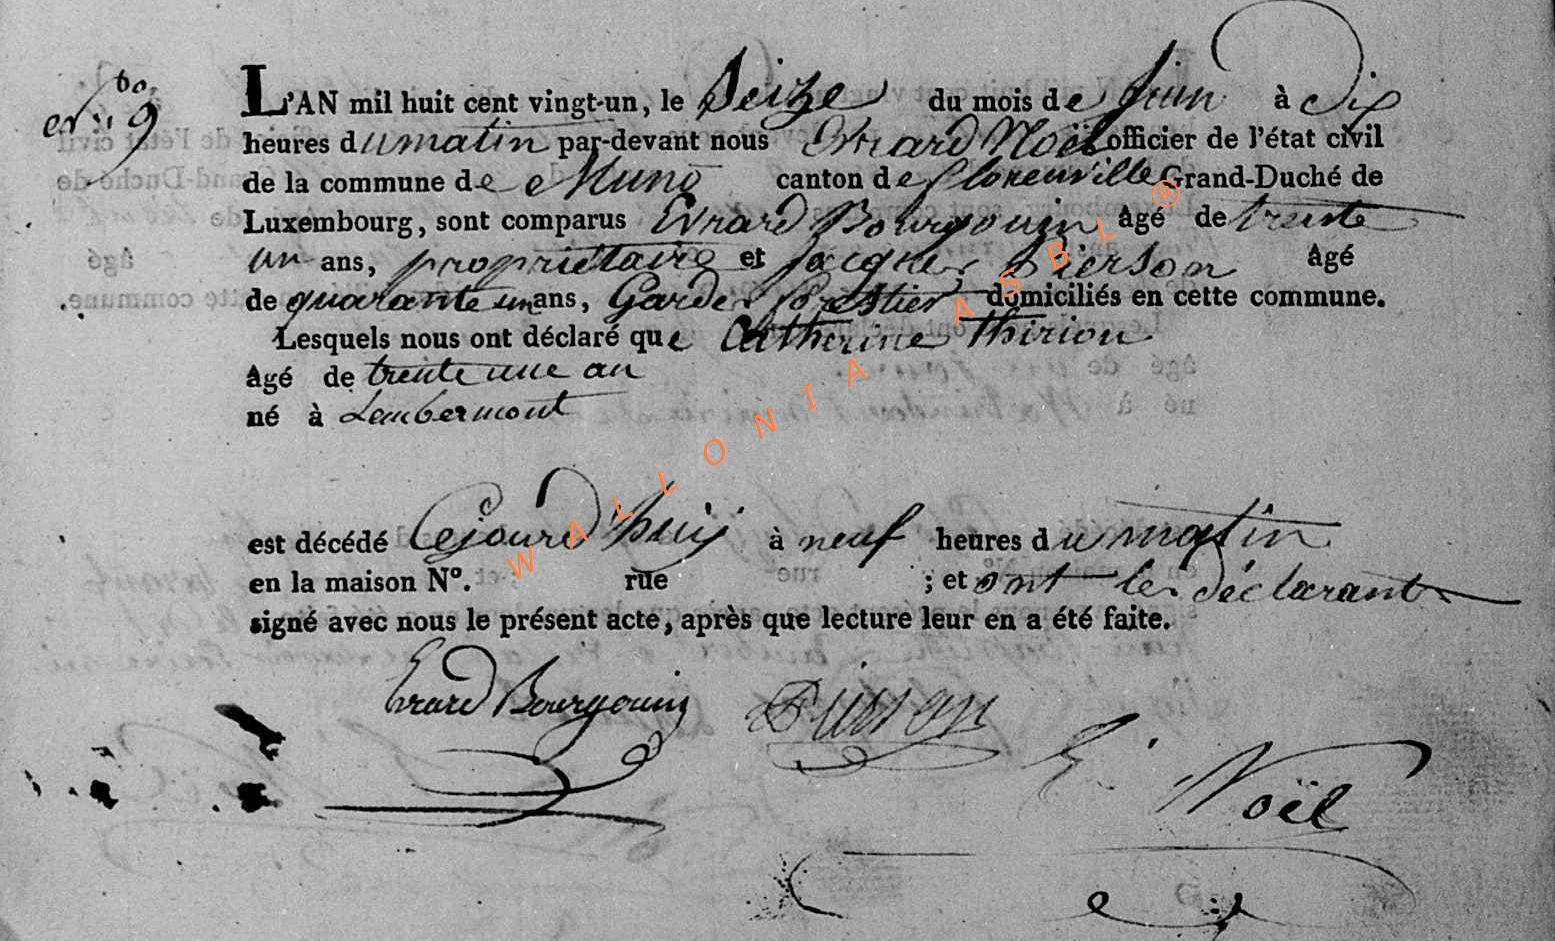 No. 9
L'AN mil huit cent vingt-un, le Seize du mois de Juin à dix
heures du matin par-devant nous Evrard Noël officier de l'état civil
de la commune de Muno canton de florenville Grand-Duché de
Luxembourg, sont comparus Evrard Bourgouin âgé de trente
un ans, propriétaire et jacques Pierson âgé
de quarante un ans, Garde forestier domiciliés en cette commune.
Lesquels nous ont déclaré que Catherine thirion
âgé de trente une an
né à Lambermont
est décédé Cejourd'huij à neuf heures du matin
en la maison N°. rue ; et ont les déclarants
signé avec nous le présent acte, après que lecture leur en a été faite.
Evrard Bourgouin Pierson
E. Noël
WALLONIA ASBL ®